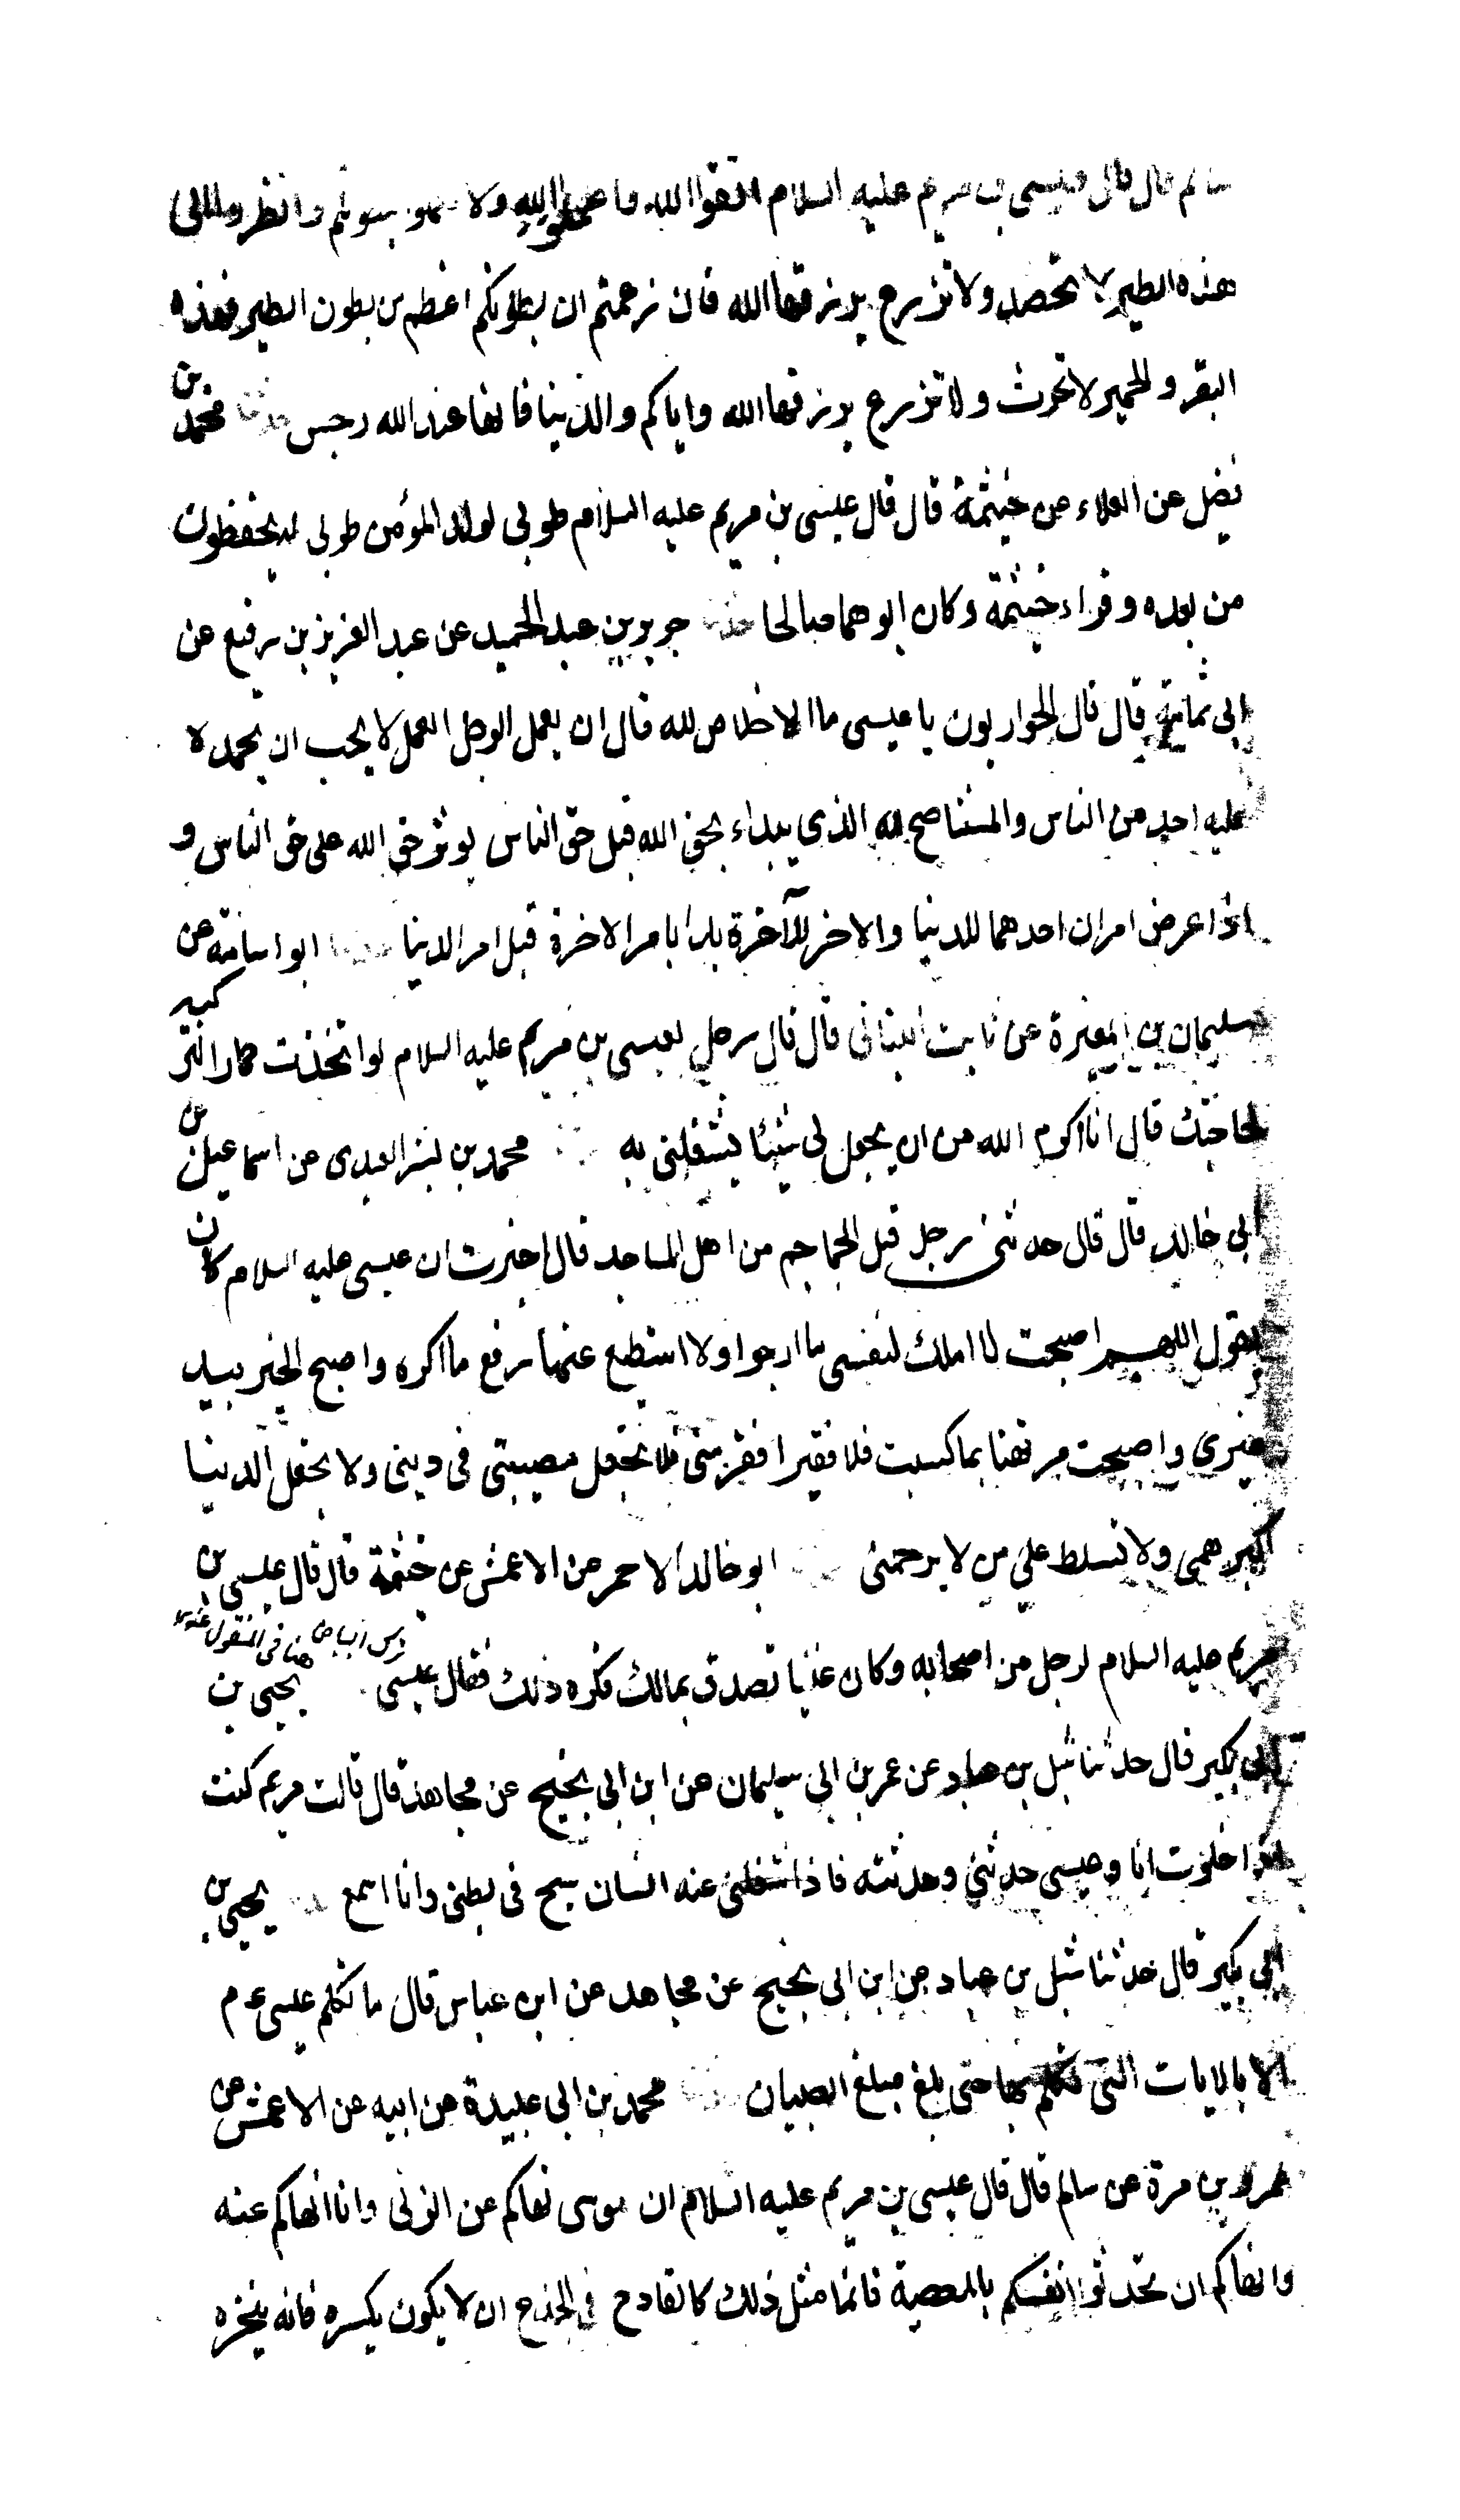 سالم قال قال عيسى بن مريم عليه السلام اتقوا الله واعملوا لله ولا بطونكم وانظروا الى
هذه الطير لا تحصد ولا تزرع يرزقها الله فان زعمتم ان بطونكم اعظم من بطون الطير فهذه
البقر والحمير لا تحرث ولا تزرع يرزقها الله واياكم والدنيا فانها عند الله رجس حدثنا محمد بن
فضل عن العلاء عن خيثمة قال قال عيسى بن مريم عليه السلام طوبى لولد المؤمن طوبى له يحفظون
من بعده وقراء خيثمة وكان ابوهما صالحا حدثنا جرير بن عبد الحميد عن عبد العزيز بن رفيع عن
ابى ثمامة قال قال الحواريون يا عيسى ما الاخلاص لله قال ان يعمل الرجل العمل لا يحب ان يحمده
عليه احد من الناس والمناصح لله الذى يبداء بحق الله قبل حق الناس يوثر حق الله على حق الناس و
اذا عرض امران احدهما للدنيا والاخر للآخرة بدا بامر الاخرة قبل امر الدنيا حدثنا ابو اسامة عن
سليمان بن المغيرة عن ثابت البنانى قال قال رجل لعيسى بن مريم عليه السلام لو اتخذت حمارا تركبه
لحاجتك قال انا اكرم الله من ان يجعل لى شيئا يشغلنى به محمد بن بشر العبدى عن اسماعيل بن
ابى خالد قال قال حدثنى رجل قبل الجماجم من اهل المساجد قال اخبرت ان عيسى عليه السلام كان
يقول اللهم اصبحت لا املك لنفسى ما ارجوا ولا استطيع عنها رفع ما اكره واصبح الخير بيد
غيرى واصبحت مرتهنا بما كسبت فلا فقير افقر منى فلا تجعل مصيبتى فى دينى ولا تجعل الدنيا
اكبر همى ولا تسلط على من لا يرحمنى ابو خالد الاحمر عن الاعمش عن خثمة قال قال عيسى بن
مريم عليه السلام لرجل من اصحابه وكان غنيا تصدق بمالك فكره ذلك فقال عيسى يحيى بن
هنا فى المنقول عنه
ابى بكير قال حدثنا شبل بن عباد عن عمر بن ابى سليمان عن ابن ابى نجيح عن مجاهد قال قالت مريم كنت
اذا خلوت انا وعيسى حدثنى وحدثته فاذا شغلنى عنه انسان سبح فى بطنى وانا اسمع يحيى بن
ابى بكير قال حدثنا شبل بن عباد عن ابن ابى نجيح عن مجاهد عن ابن عباس قال ما تكلم عيسى ع م
الا بالايات التى تكلم بها حتى بلغ مبلغ الصبيان محمد بن ابى عبيدة عن ابيه عن الاعمش عن
عمرو بن مرة عن سالم قال قال عيسى بن مريم عليه السلام ان موسى نهاكم عن الزنى وانا انهاكم عنه
وانهاكم ان تحدثوا انفسكم بالمعصية فانما مثل ذلك كالقادح فى الجذع ان لا يكون يكسره فانه ينخره